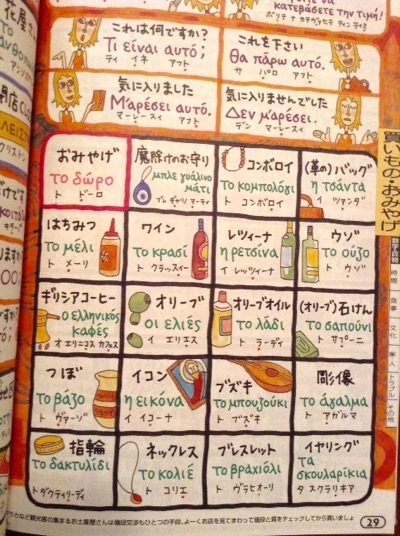 κατεβάσετε την τιμή!
ボリテ ナ カテヴァセテ ティン ティミ
これは何ですか?
Τι είναι αυτό;
ティ イネ アフト
これを下さい
Θα πάρω αυτό.
サ パロ アフト
気に入りました
Μ'αρέσει αυτό.
マーレースィ アフト
気に入りませんでした
Δεν μ'αρέσει.
デン マーレースィ
おみやげ
το δώρο
ト ドーロ
魔除けのお守り
μπλε γυάλινο
μάτι
ブレ ギャリノ マーティ
コンボロイ
το κομπολόγι
ト コンボロイ
(革の)バッグ
η τσάντα
イ ツァンダ
はちみつ
το μέλι
ト メーリ
ワイン
το κρασί
ト クラッスィー
レツィーナ
η ρετσίνα
イ レッツィーナ
ウゾ
το ούζο
ト ウゾ
ギリシアコーヒー
ο ελληνικός
καφές
オ エリニコス カフェス
オリーブ
οι ελιές
イ エリエス
オリーブオイル
το λάδι
ト ラーディ
(オリーブ)石けん
το σαπούνι
ト サプーニ
つぼ
το βάζο
ト ヴァーゾ
イコン
η εικόνα
イ イコーナ
ブズキ
το μπουζούκι
ト ブズキ
彫像
το άγαλμα
ト アガルマ
指輪
το δακτυλίδι
ト ダクティリーディ
ネックレス
το κολιέ
ト コリエ
ブレスレット
το βραχιόλι
ト ヴラヒオーリ
イヤリング
τα
σκουλαρίκια
タ スクラリキア
買いもの・おみやげ
数字・買物
時間
食事
文化
家・人
トラブル
その他
ラカなど観光客の集まるお土産屋さんは値段交渉もひとつの手段。よーくお店を見てまわって値段と質をチェックしてから買いましょ
29